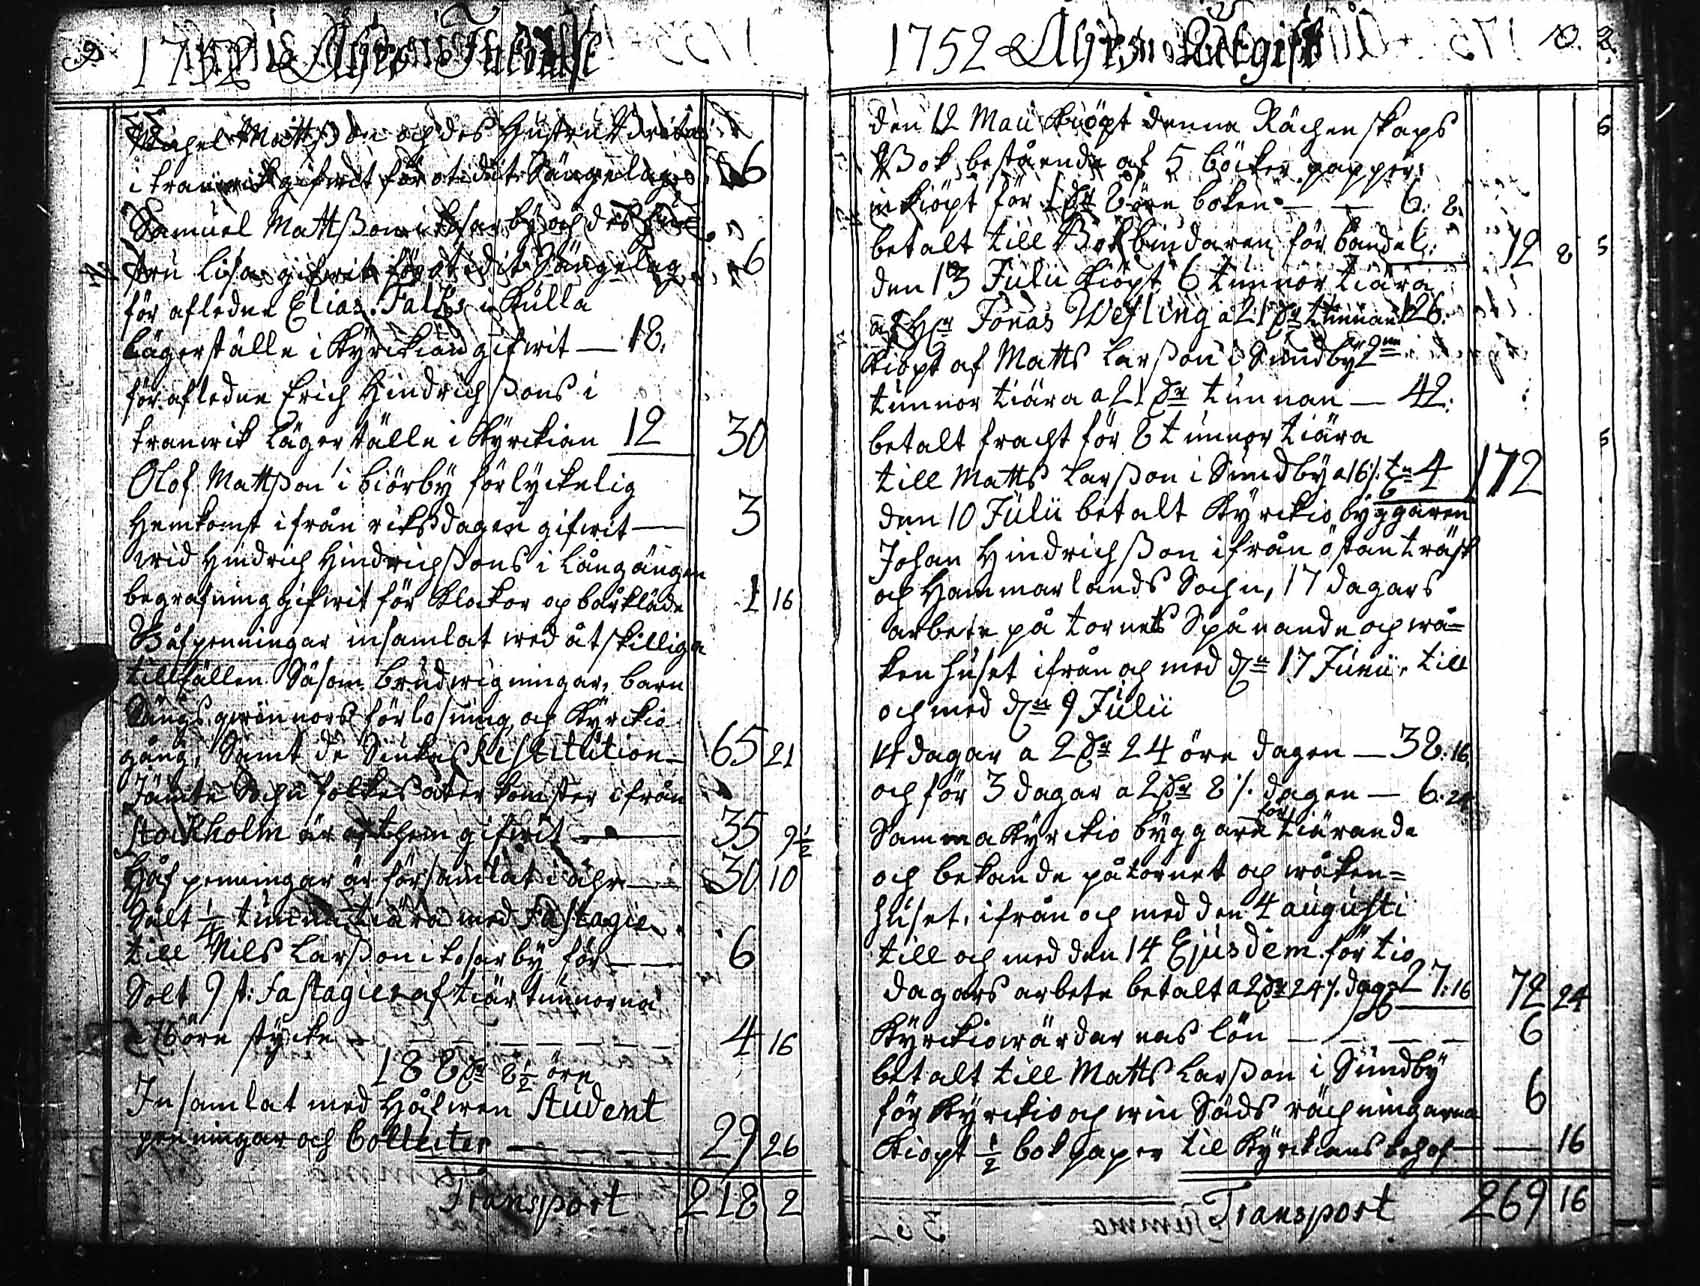 9
1752 Åhrs Inkomst
Michel Mattsson och des Hustru Brita
i tranwik gifwit för otidit Sängelag 6
Samuel Mattsson i kosarby och des
fru lisa gifwit för otidit Sängelag 6
för afledne Elias Falks i Kulla
lägerställe i Kyrckian gifwit — 18
för afledne Erich Hindrichssons i
tranwik Lägerställe i Kyrckian 12 30
Olof Mattsson i biörby för lyckelig
hemkomst ifrån riksdagen gifwit — 3
wid Hindrich Hindrichssons i Långängen
begrafning gifwit för Klockor och bårkläde 1 16
Håfpenningar insamlat wed åtskilliga
tillfällen Såsom brudwigningar, barn
Sängs qwinnors förlosning och Kyrckio
gång, Samt de Siukas Restitution 65 21
Jämte Sochn folkets återkomster ifrån
Stockholm är af them gifwit — 35 9 1/2
Håf penningar är församlat i åhr — 30 10
Sålt 1/4 tunna tiära med Fastagie
till Nils Larsson i kosarby för — 6
Solt 9 st: Fastagier af tiär tunnorna
a 16 öre stycke — 4 16
188 dr 8 1/2 öre
Insamlat med Håfwen Student
penningar och Collecter — 29 26
Transport 218 2
1752 Åhrs Utgift 10.
den 12 Maii Kiöpt denna Rächenskaps
Bok bestående af 5 böcker papper
inkiöpt för 1 dr 8 öre boken — 6. 8.
betalt till Bokbindaren för bandet 6 12 8
den 13 Julii Kiöpt 6 tunnor tiära
af Hr Jonas Wefling a 21 dr tunnan 126
Kiöpt af Matts Larsson i Sundby 2
tunnor tiära a 21 dr tunnan — 42:
betalt fracht för 8 tunnor tiära
till Matts Larsson i Sundby a 16 4 172
den 10 Julii betalt Kyrckiobyggaren
Johan Hindrichsson ifrån östanträsk
och Hammarlands Sochn, 17 dagars
arbete på tornets Spånande och wå=
kenhuset ifrån och med dn 17 Junii, till
och med dn 9 Julii
14 dagar a 2 dr 24 öre dagen — 38: 16
och för 3 dagar a 2 dr 8 /. dagen — 6. 24
Samma Kyrckio byggare för tiärande
och bekande på tornet och wåken=
huset, ifrån och med den 4 augusti
till och med den 14 Ejusdem för tio
dagars arbete betalt a 2 dr 24 /. dagen 27: 16 72 24
Kyrckiowärdarnas lön — 6
betalt till Matts Larsson i Sundby
för Kyrckio och win Säds rächningarna 6
Kiöpt 1/2 bok paper til Kyrckians behof — 16
Transport 269 16